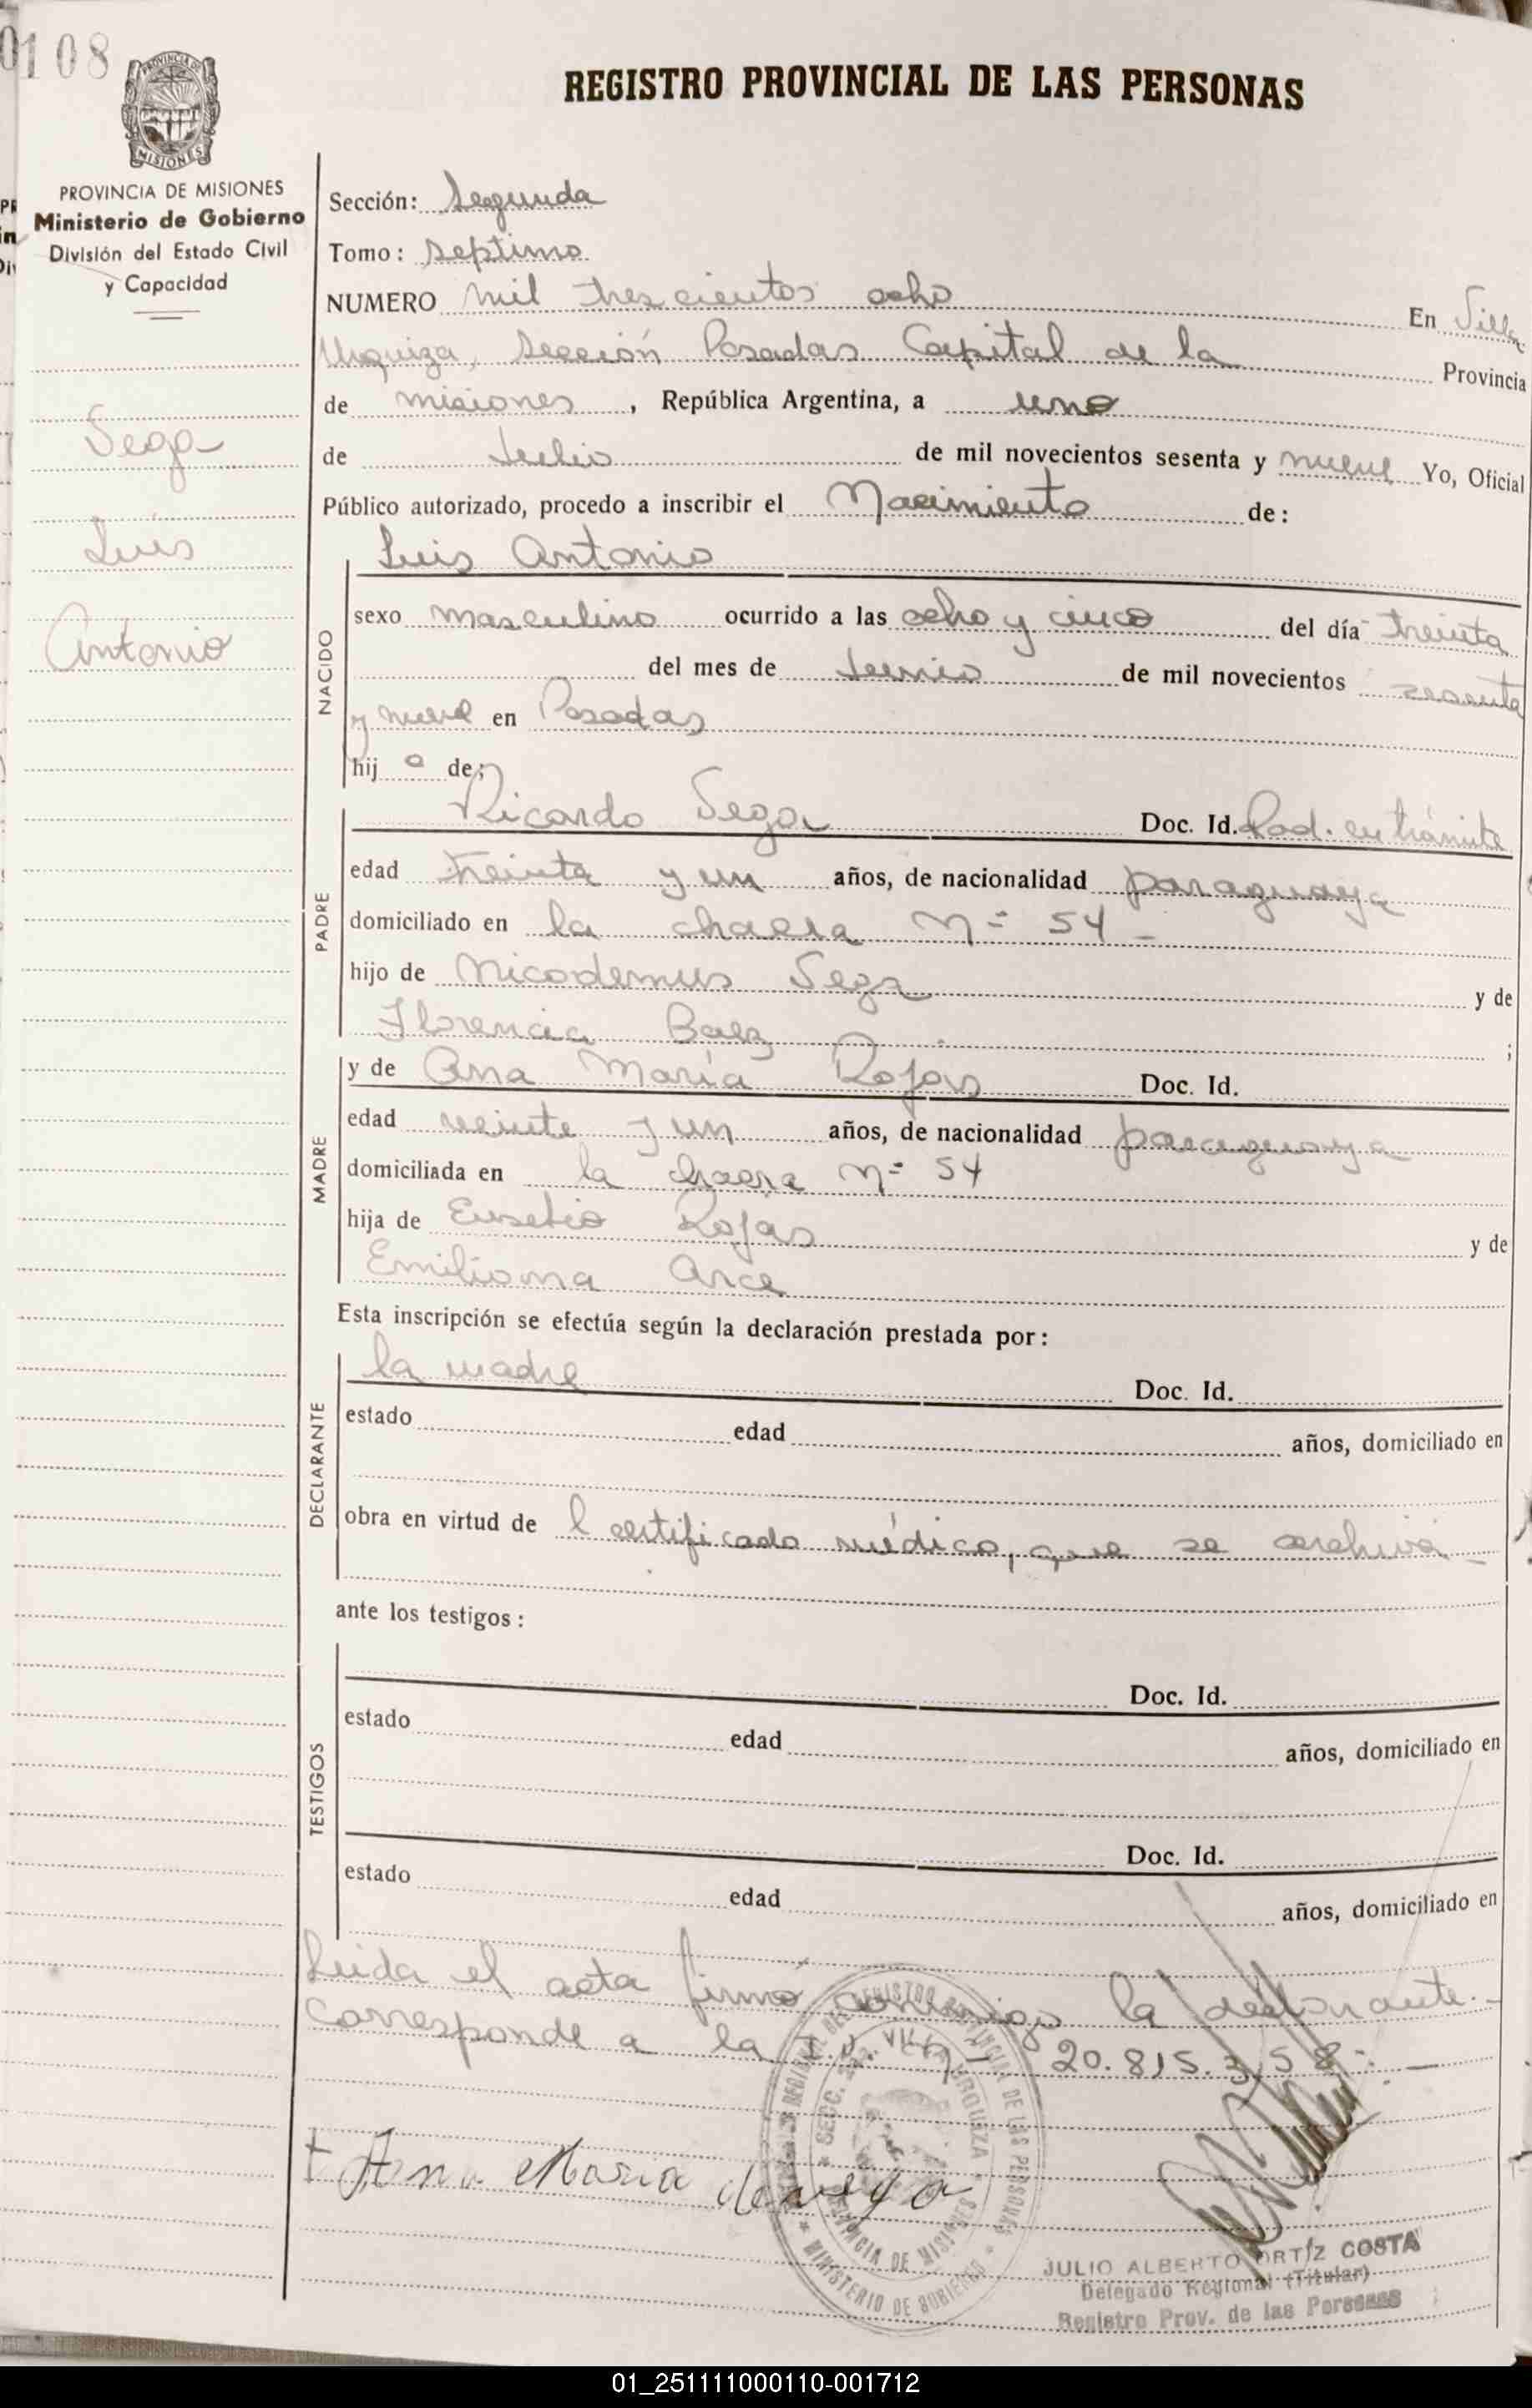 0108
REGISTRO PROVINCIAL DE LAS PERSONAS
PROVINCIA DE MISIONES
MISIONES
PROVINCIA DE MISIONES
Ministerio de Gobierno
División del Estado Civil
y Capacidad
Sega
Luis
Antonio
Sección: Segunda
Tomo: septimo
NUMERO mil trescientos ocho En Villa
Urquiza, Sección Posadas Capital de la Provincia
de misiones, República Argentina, a uno
de Julio de mil novecientos sesenta y nueve Yo, Oficial
Público autorizado, procedo a inscribir el Nacimiento de:
Luis Antonio
NACIDO
sexo masculino ocurrido a las ocho y cinco del día treinta
del mes de Junio de mil novecientos sesenta
y nueve en Posadas
hijo de:
PADRE
Ricardo Sega Doc. Id. Rad. en trámite
edad treinta y un años, de nacionalidad paraguaya
domiciliado en la chacra Nº 54 -
hijo de Nicodemus Sega y de
Florencia Baez ;
MADRE
y de Ana María Rojas Doc. Id.
edad veinte y un años, de nacionalidad paraguaya
domiciliada en la chacra Nº 54
hija de Eusebio Rojas y de
Emiliana Arce
Esta inscripción se efectúa según la declaración prestada por:
DECLARANTE
la madre Doc. Id.
estado edad años, domiciliado en
obra en virtud de l certificado médico, que se archiva -
ante los testigos:
TESTIGOS
Doc. Id.
estado edad años, domiciliado en
Doc. Id.
estado edad años, domiciliado en
Leida el acta firmó conmigo la declarante.-
Corresponde a la I.N. Nº 20.815.358.-
Ana Maria de vega
SECC. 2da. VILLA URQUIZA
PROVINCIA DE MISIONES
MINISTERIO DE GOBIERNO
JULIO ALBERTO ORTIZ COSTA
Delegado Regional (Titular)
Registro Prov. de las Personas
01_251111000110-001712